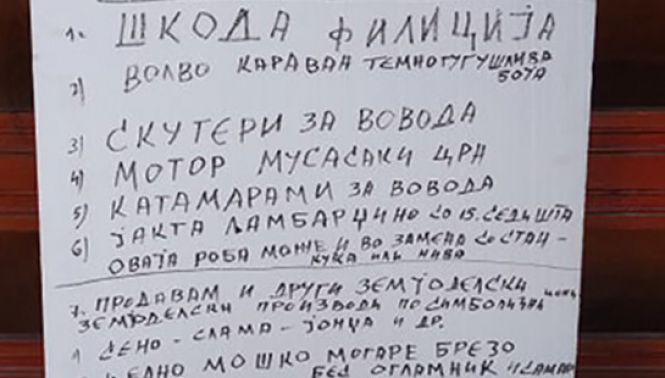 1. ШКОДА ФИЛИЦИЈА
2) ВОЛВО КАРАВАН ТЕМНОГУГУШЛИВА
БОЈА
3) СКУТЕРИ ЗА ВОВОДА
4) МОТОР МУСАСАКИ ЦРН
5) КАТАМАРАМИ ЗА ВОВОДА
6) ЈАКТА ЛАМБАРЏИНО СО 15. СЕДИШТА
ОВАЈА РОБА МОЖЕ И ВО ЗАМЕНА СО СТАН -
КУЌА ИЛИ НИВА
7. ПРОДАВАМ И ДРУГИ ЗЕМЈОДЕЛСКИ
ЗЕМЈОДЕЛСКИ ПРОИЗВОДИ ПО СИМБОЛИЧНИ ЦЕНИ
1 СЕНО - СЛАМА - ЈОНЏА И ДР.
ЕДНО МОШКО МОГАРЕ БРЕЗО
БЕЗ ОГЛАМНИК И